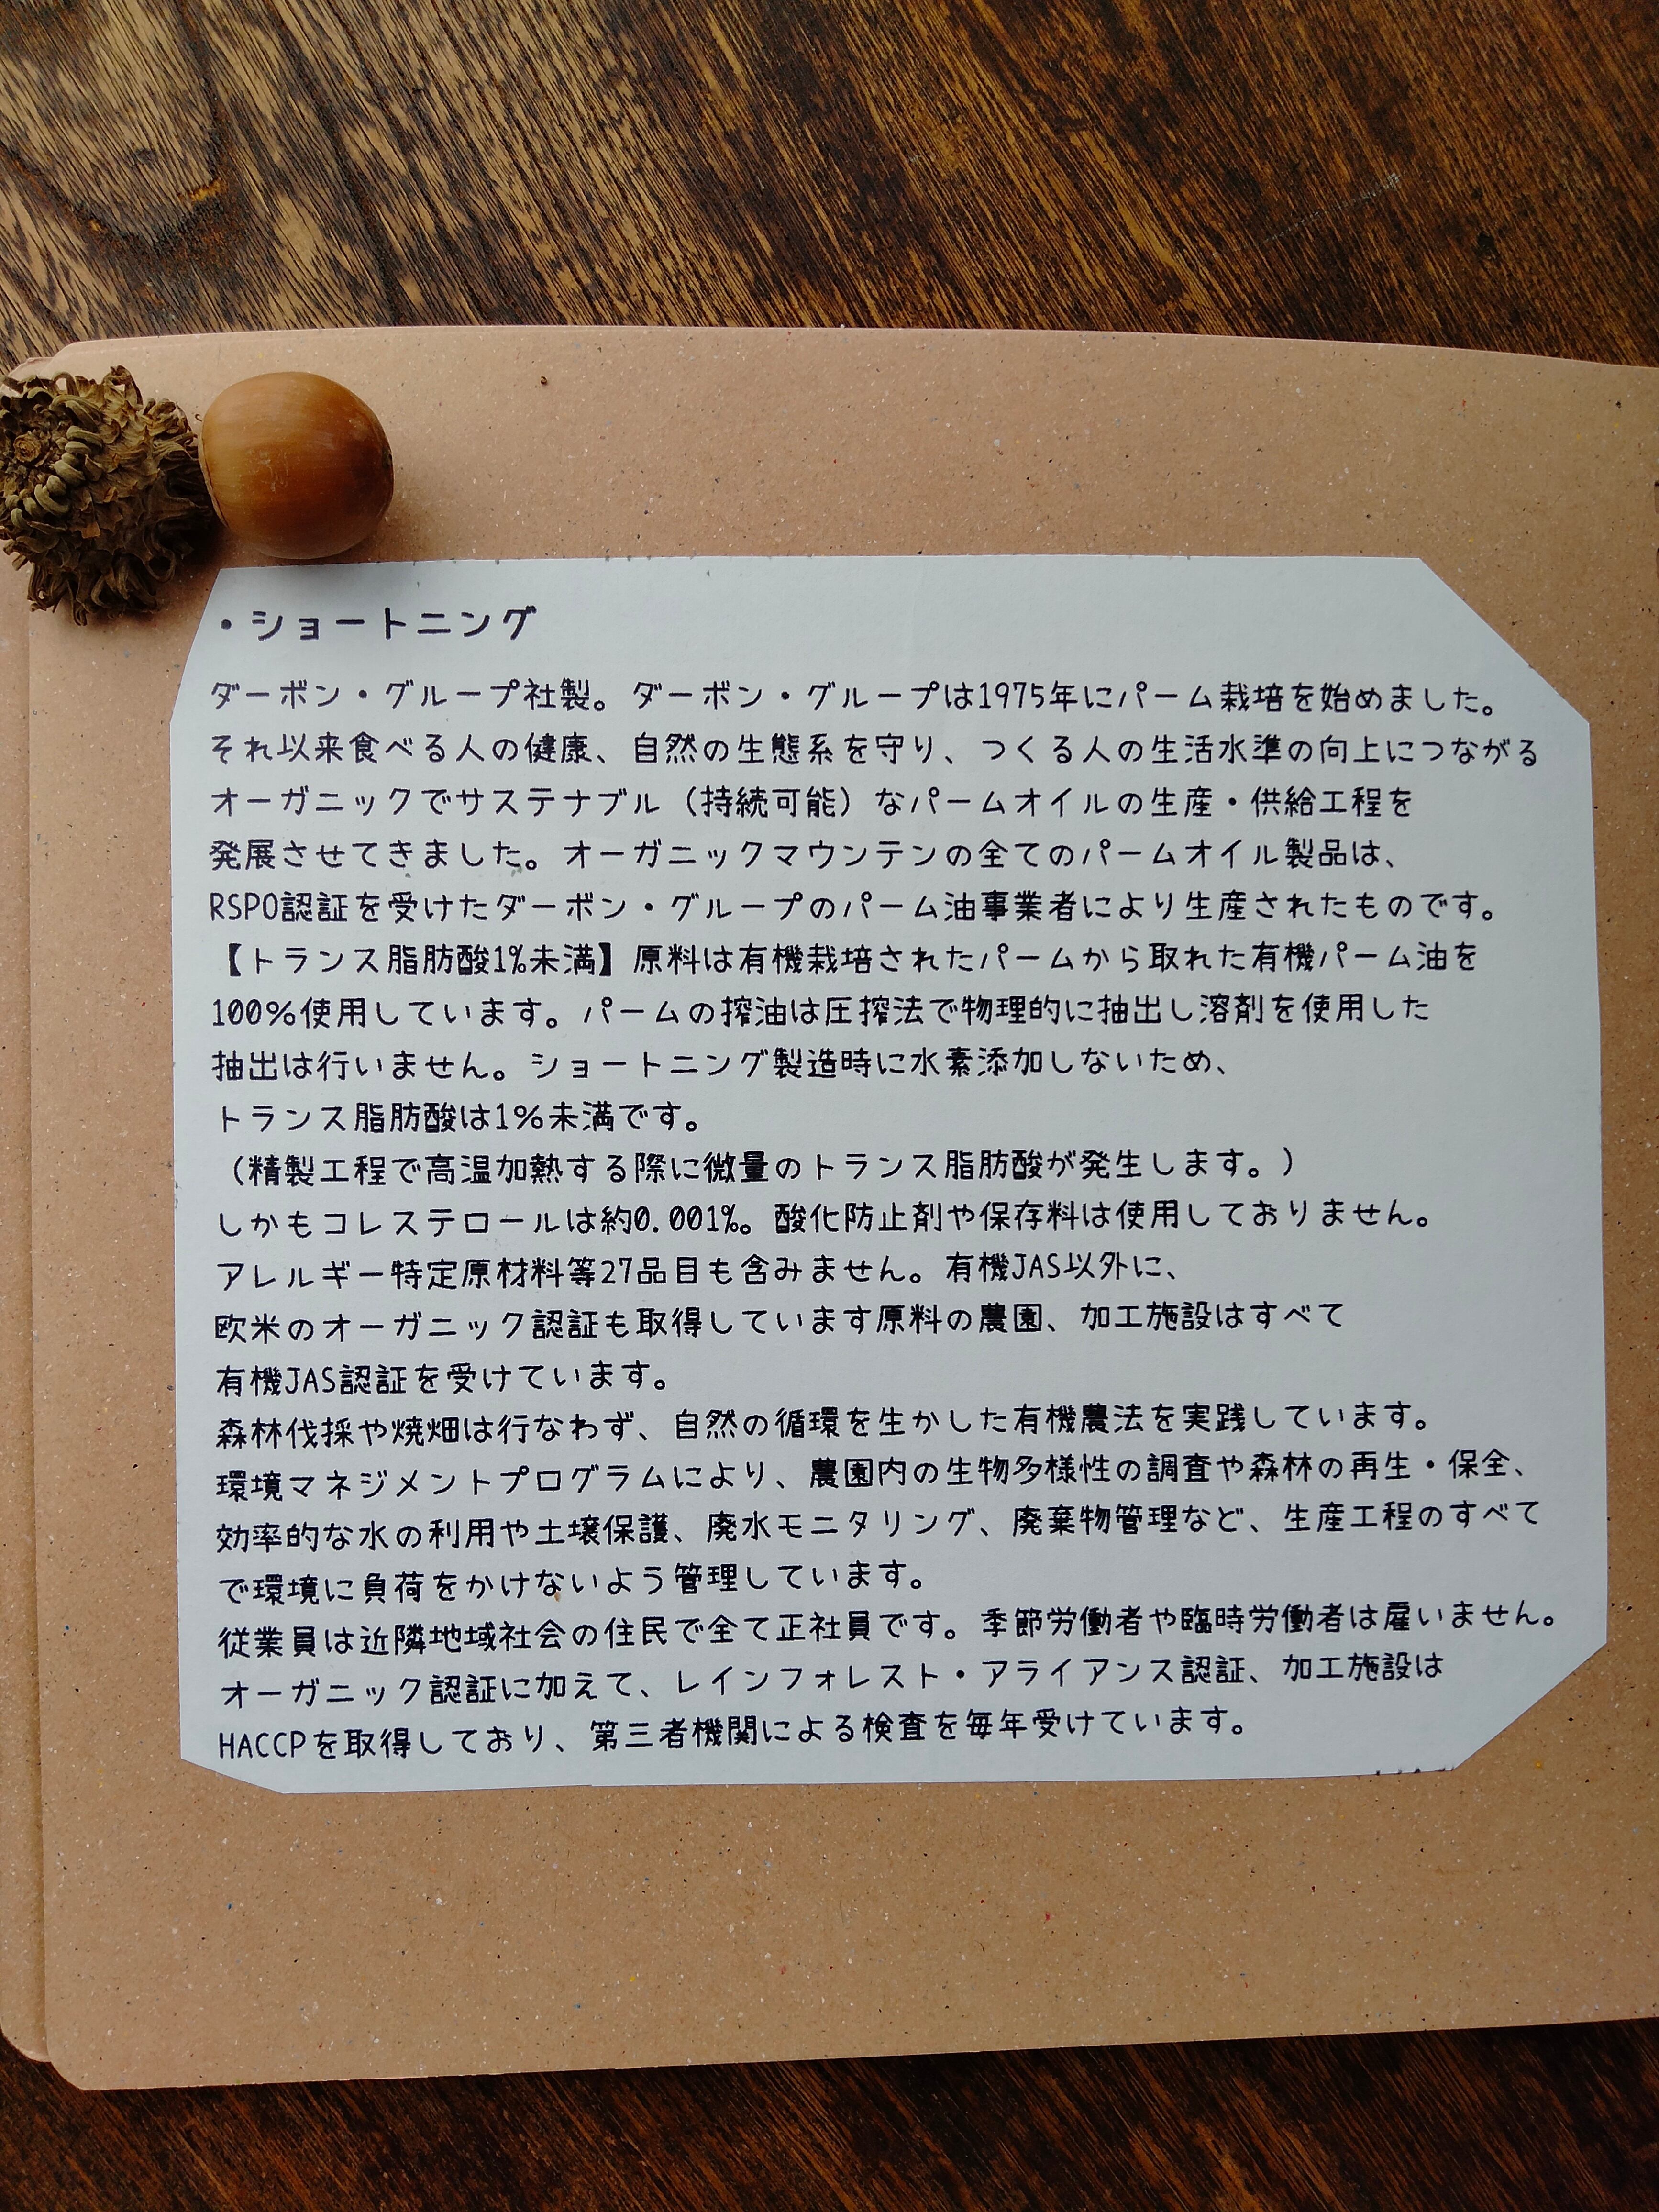 ・ショートニング
ダーボン・グループ社製。ダーボン・グループは1975年にパーム栽培を始めました。
それ以来食べる人の健康、自然の生態系を守り、つくる人の生活水準の向上につながる
オーガニックでサステナブル（持続可能）なパームオイルの生産・供給工程を
発展させてきました。オーガニックマウンテンの全てのパームオイル製品は、
RSPO認証を受けたダーボン・グループのパーム油事業者により生産されたものです。
【トランス脂肪酸1%未満】原料は有機栽培されたパームから取れた有機パーム油を
100%使用しています。パームの搾油は圧搾法で物理的に抽出し溶剤を使用した
抽出は行いません。ショートニング製造時に水素添加しないため、
トランス脂肪酸は1%未満です。
（精製工程で高温加熱する際に微量のトランス脂肪酸が発生します。）
しかもコレステロールは約0.001%。酸化防止剤や保存料は使用しておりません。
アレルギー特定原材料等27品目も含みません。有機JAS以外に、
欧米のオーガニック認証も取得しています原料の農園、加工施設はすべて
有機JAS認証を受けています。
森林伐採や焼畑は行なわず、自然の循環を生かした有機農法を実践しています。
環境マネジメントプログラムにより、農園内の生物多様性の調査や森林の再生・保全、
効率的な水の利用や土壌保護、廃水モニタリング、廃棄物管理など、生産工程のすべて
で環境に負荷をかけないよう管理しています。
従業員は近隣地域社会の住民で全て正社員です。季節労働者や臨時労働者は雇いません。
オーガニック認証に加えて、レインフォレスト・アライアンス認証、加工施設は
HACCPを取得しており、第三者機関による検査を毎年受けています。